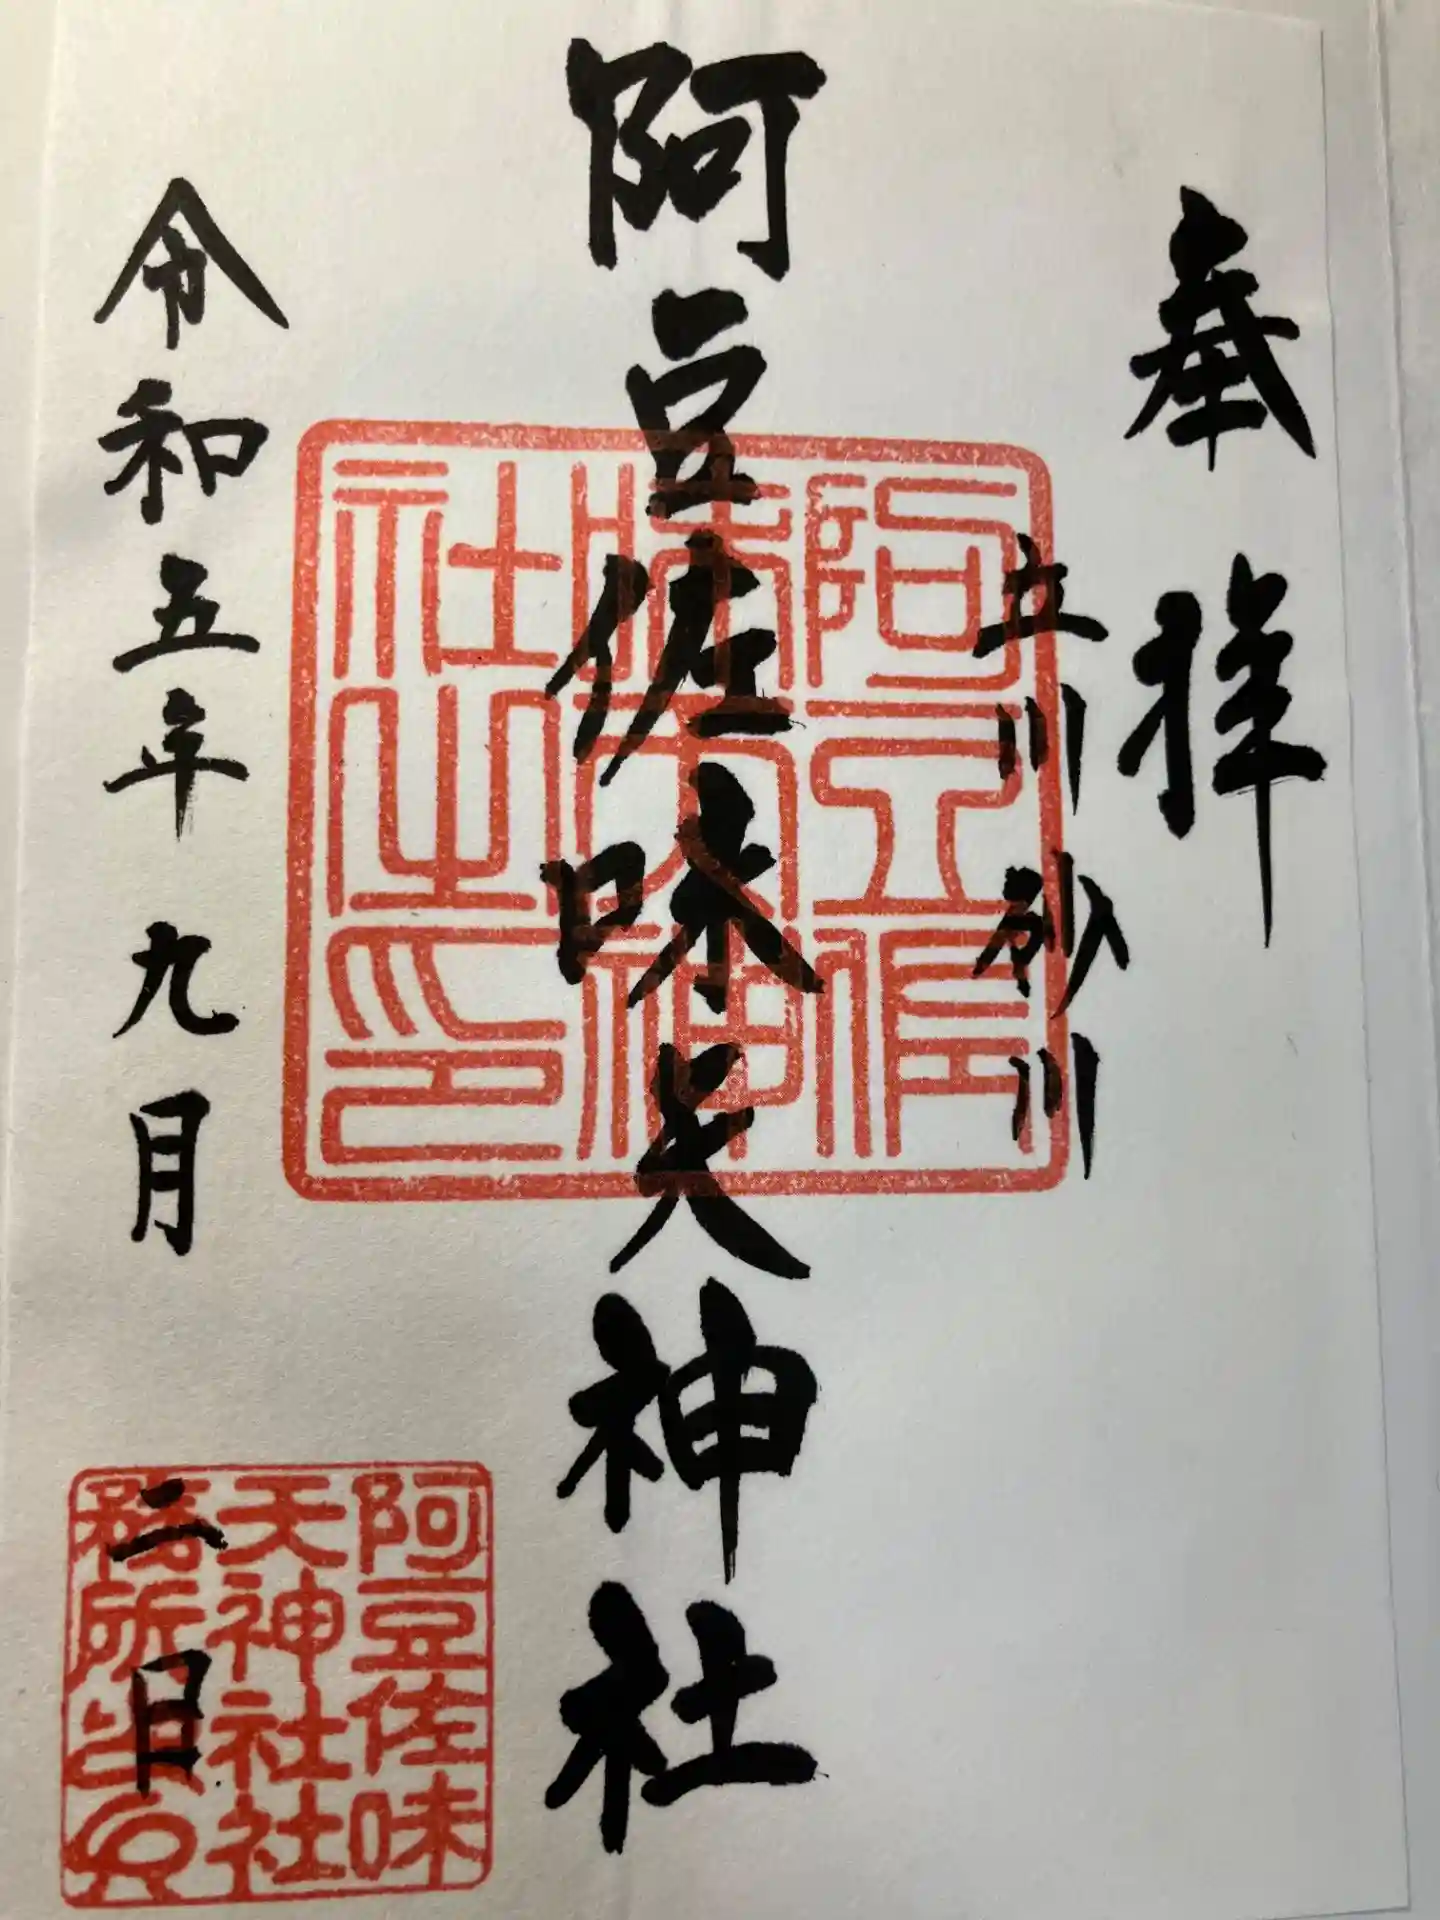 奉拝
立川 砂川
阿豆佐味天神社
阿豆佐
味天神
社之印
令和五年九月二日
阿豆佐味
天神社社
務所之印